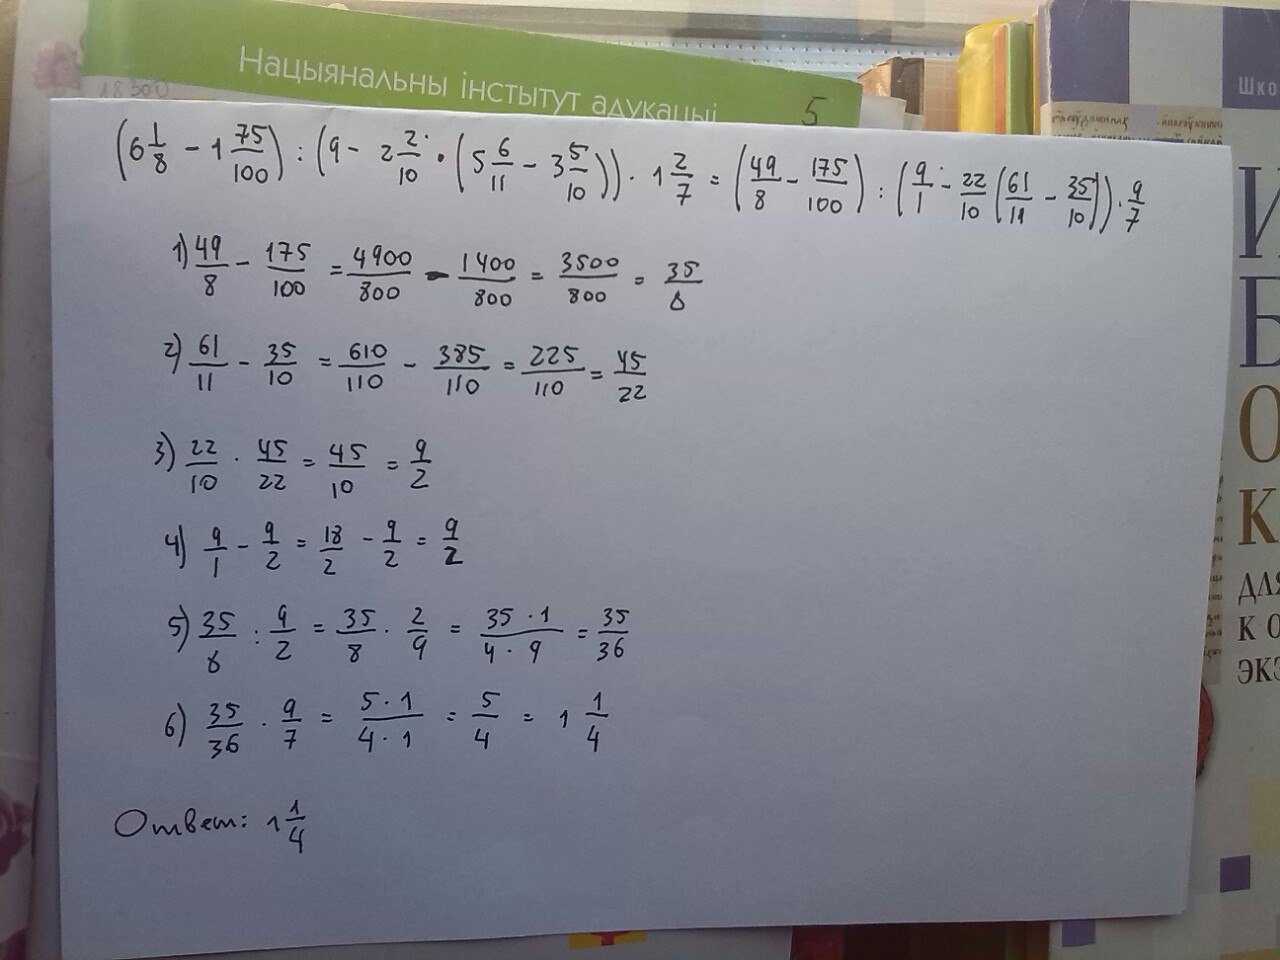 Нацыянальны інстытут адукацыі
18300
5
Шко
(6 1/8 - 1 75/100) : (9 - 2 2/10 · (5 6/11 - 3 5/10)) · 1 2/7 = (49/8 - 175/100) : (9/1 - 22/10 (61/11 - 35/10)) · 9/7
1) 49/8 - 175/100 = 4900/800 - 1400/800 = 3500/800 = 35/8
2) 61/11 - 35/10 = 610/110 - 385/110 = 225/110 = 45/22
3) 22/10 · 45/22 = 45/10 = 9/2
4) 9/1 - 9/2 = 18/2 - 9/2 = 9/2
5) 35/8 : 9/2 = 35/8 · 2/9 = 35 · 1/4 · 9 = 35/36
6) 35/36 · 9/7 = 5 · 1/4 · 1 = 5/4 = 1 1/4
Ответ: 1 1/4
И
Б
О
К
ДЛЯ
К О
ЭКЗ